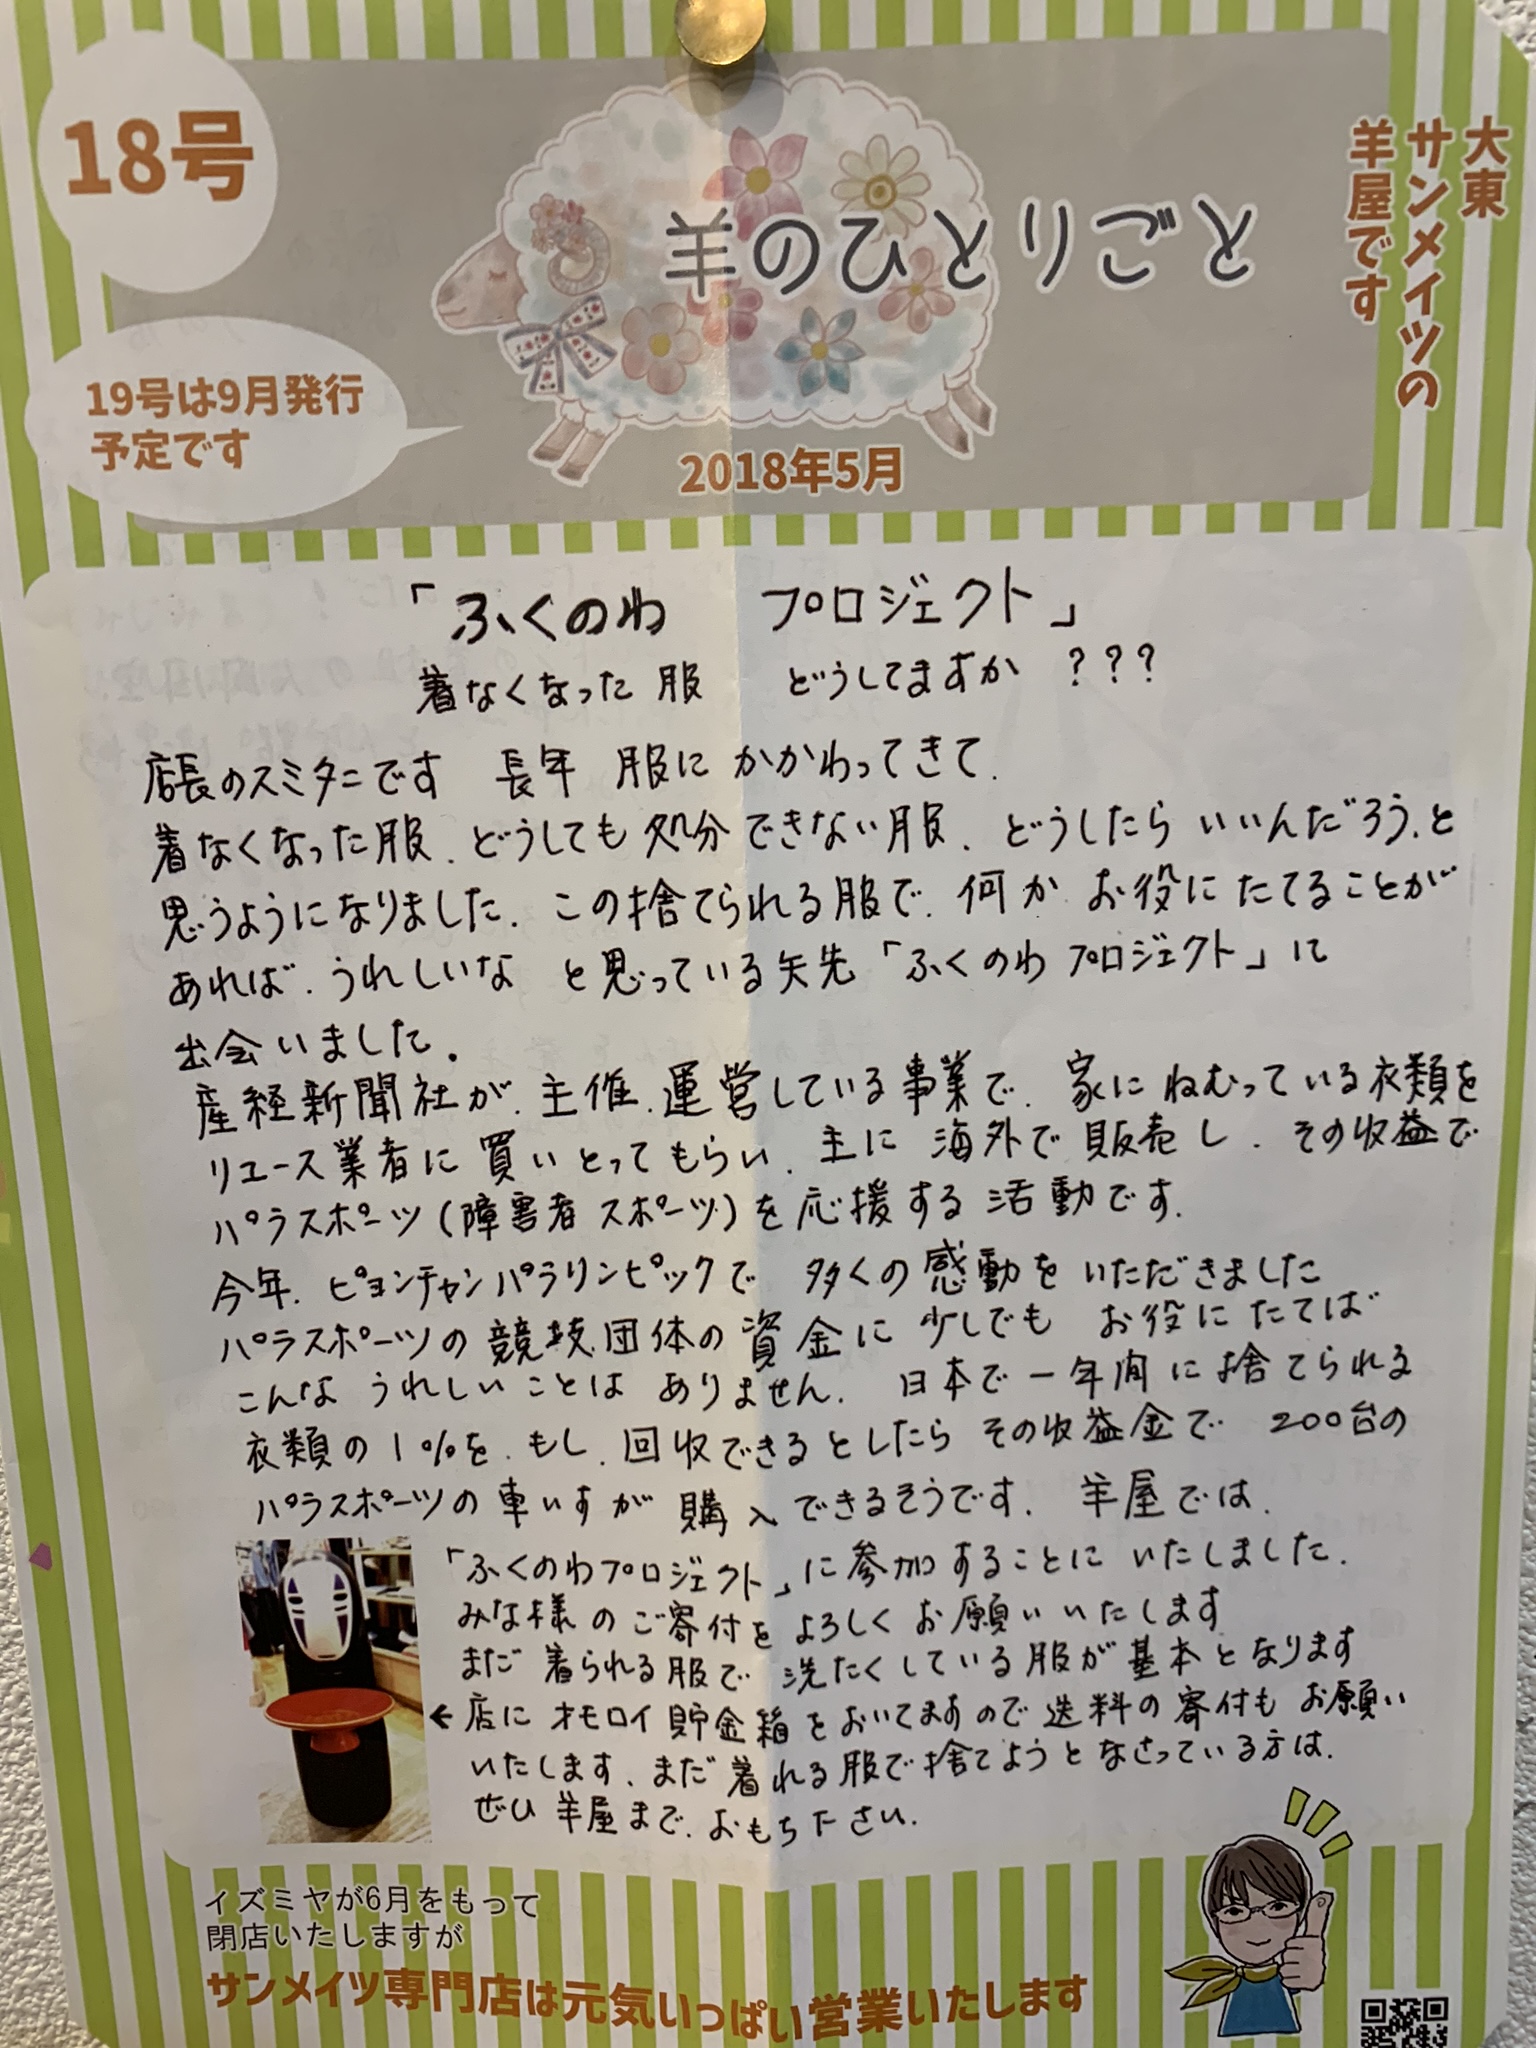 18号
大東
サンメイツの
羊屋です
羊のひとりごと
19号は9月発行
予定です
2018年5月
「ふくのわ プロジェクト」
着なくなった 服 どうしてますか ???
店長のスミタニです 長年 服に かかわってきて、
着なくなった服、どうしても処分できない服、どうしたらいいんだろう、と
思うようになりました。この捨てられる服で、何か お役にたてることが
あれば、うれしいな と思っている矢先「ふくのわ プロジェクト」に
出会いました。
産経新聞社が、主催、運営している事業で、家にねむっている衣類を
リユース業者に買いとってもらい、主に海外で販売し、その収益で
パラスポーツ(障害者スポーツ)を応援する活動です。
今年、ピョンチャンパラリンピックで 多くの感動をいただきました
パラスポーツの競技団体の資金に少しでも お役にたてば
こんな うれしいことは ありません。日本で一年間に捨てられる
衣類の1%を、もし、回収できるとしたら その収益金で 200台の
パラスポーツの車いすが購入できるそうです。羊屋では、
「ふくのわプロジェクト」に参加することに いたしました。
みな様のご寄付をよろしくお願いいたします
まだ着られる服で 洗たくしている服が基本となります
←店に オモロイ貯金箱をおいてますので送料の寄付も お願い
いたします、まだ着れる服で捨てようとなさっている方は、
ぜひ 羊屋まで、おもち下さい。
イズミヤが6月をもって
閉店いたしますが
サンメイツ専門店は元気いっぱい営業いたします